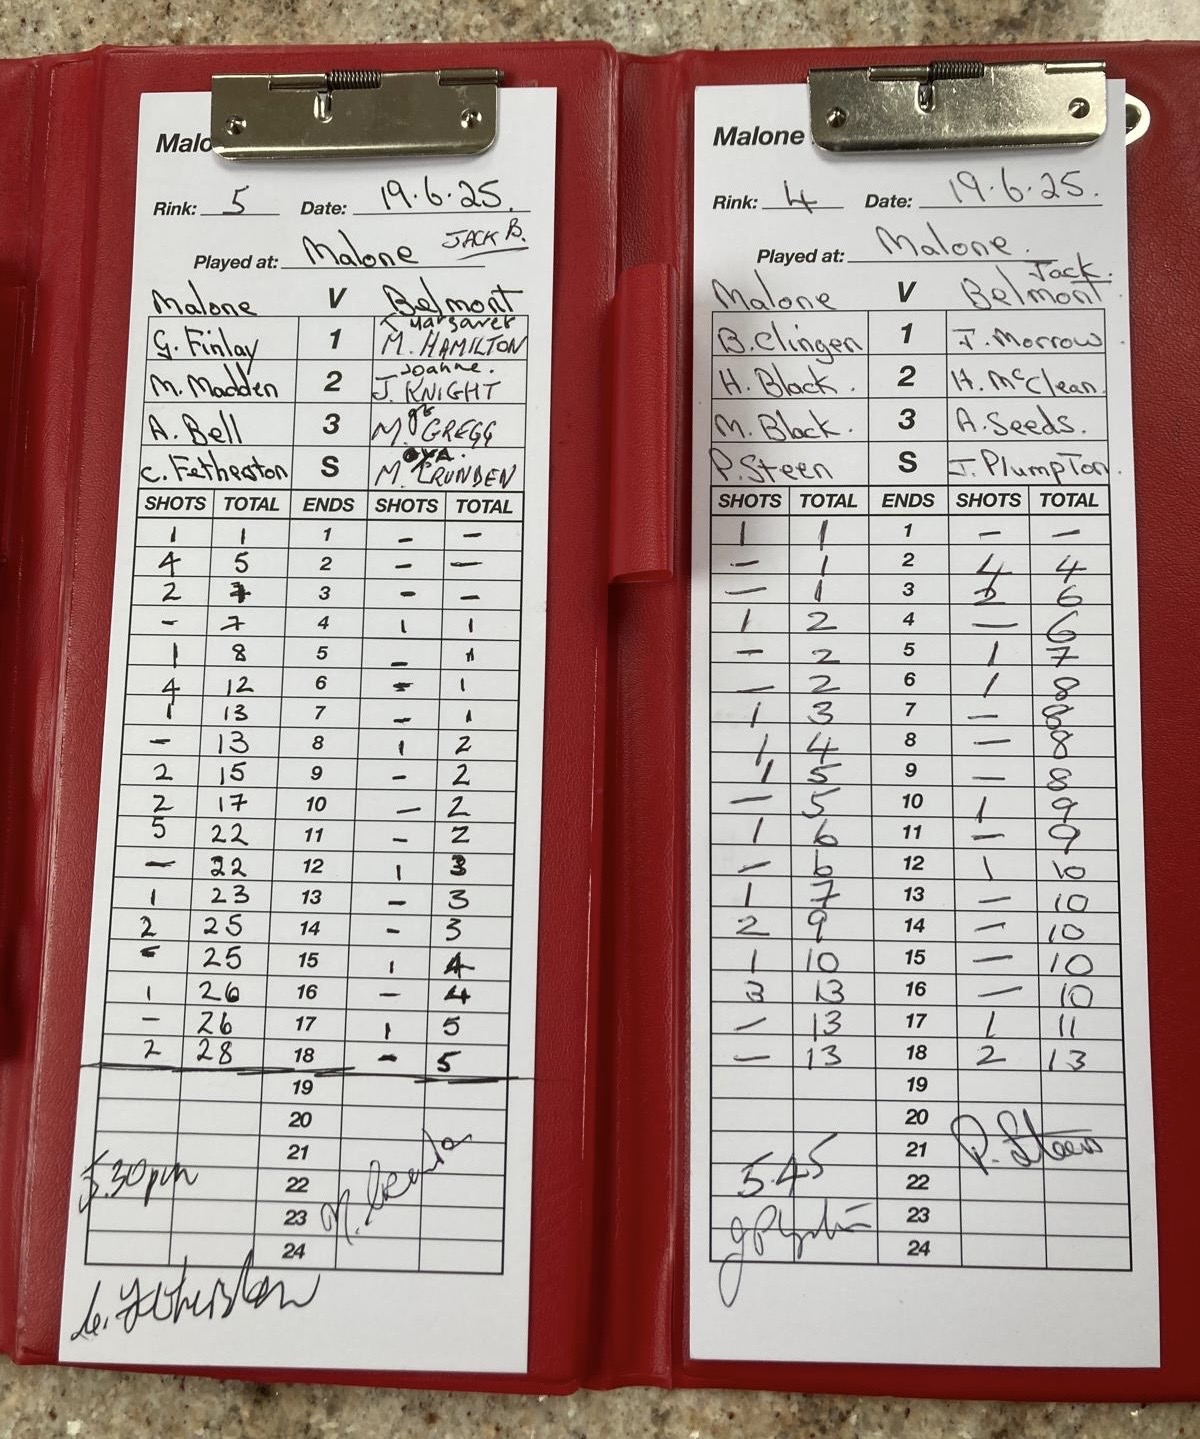 Malo
Rink: 5 Date: 19.6.25.
Played at: Malone JACK B.
Malone V Belmont
G. Finlay 1 Margaret M. HAMILTON
M. Madden 2 Joanne. J. KNIGHT
A. Bell 3 M. GREGG
C. Fetherston S M. CRUNDEN
SHOTS TOTAL ENDS SHOTS TOTAL
1 1 1 - -
4 5 2 - -
2 7 3 - -
- 7 4 1 1
1 8 5 - 1
4 12 6 - 1
1 13 7 - 1
- 13 8 1 2
2 15 9 - 2
2 17 10 - 2
5 22 11 - 2
- 22 12 1 3
1 23 13 - 3
2 25 14 - 3
- 25 15 1 4
1 26 16 - 4
- 26 17 1 5
2 28 18 - 5
19
20
21
5.30pm 22
23
24
Malone
Rink: 4 Date: 19.6.25.
Played at: Malone.
Jack.
Malone V Belmont
B. Clingen 1 J. Morrow
H. Black. 2 H. McClean.
M. Black. 3 A. Seeds.
P. Steen S J. Plumpton.
SHOTS TOTAL ENDS SHOTS TOTAL
1 1 1 - -
- 1 2 4 4
- 1 3 2 6
1 2 4 - 6
- 2 5 1 7
- 2 6 1 8
1 3 7 - 8
1 4 8 - 8
1 5 9 - 8
- 5 10 1 9
1 6 11 - 9
- 6 12 1 10
1 7 13 - 10
2 9 14 - 10
1 10 15 - 10
3 13 16 - 10
- 13 17 1 11
- 13 18 2 13
19
20
21 P. Steen
5.45 22
23
24